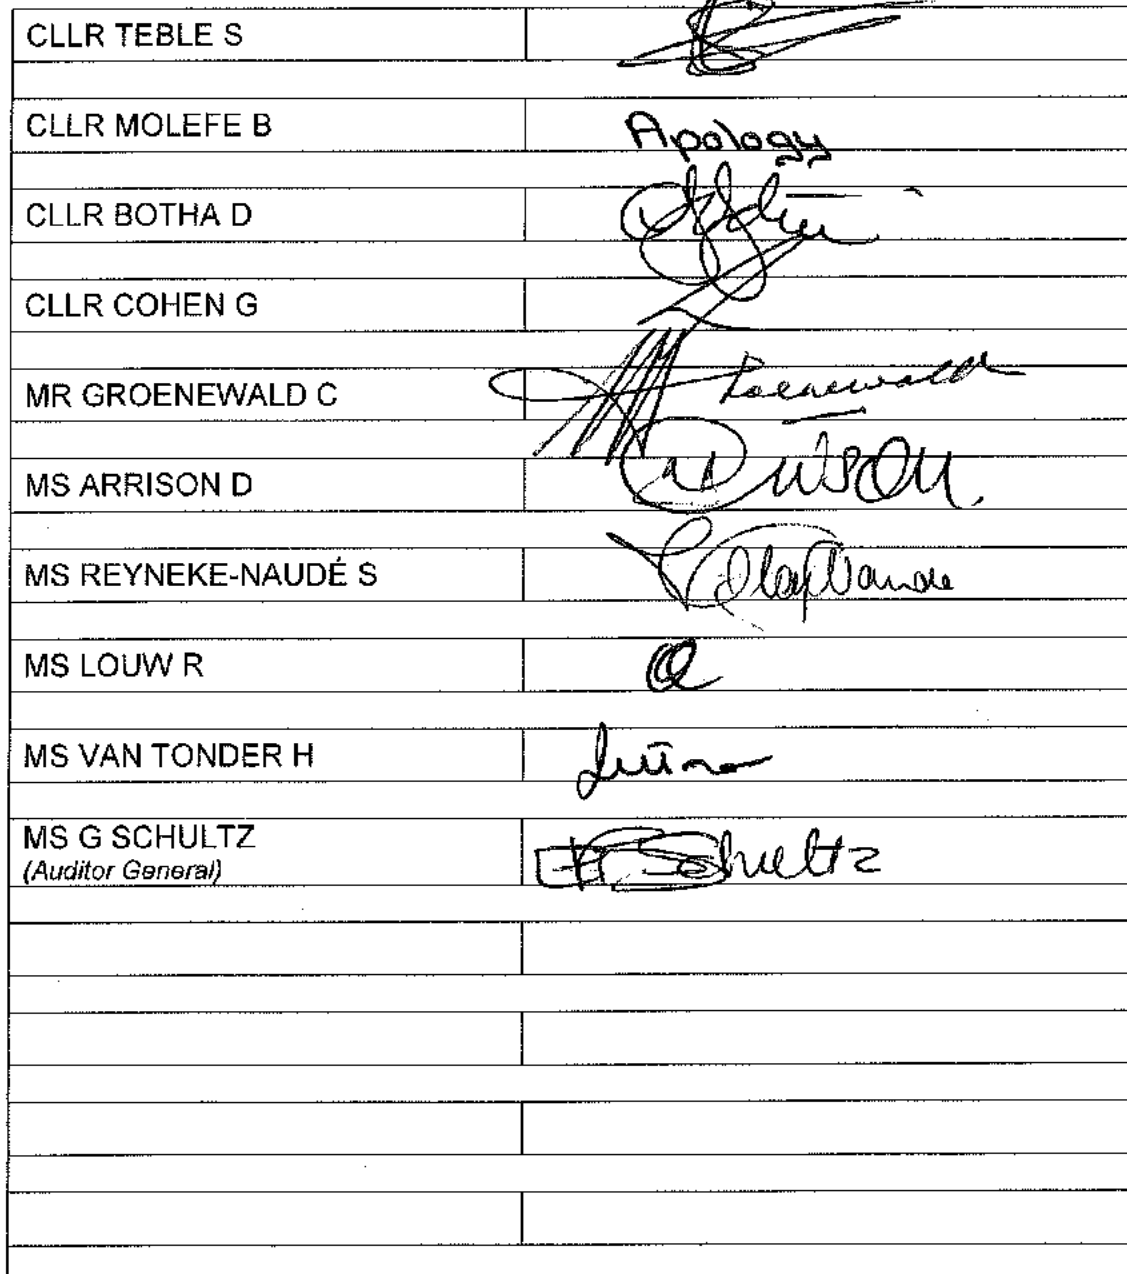 CLLR TEBLE S
CLLR MOLEFE B Apology
CLLR BOTHA D
CLLR COHEN G
MR GROENEWALD C Groenewald
MS ARRISON D
MS REYNEKE-NAUDÉ S
MS LOUW R
MS VAN TONDER H
MS G SCHULTZ Schultz
(Auditor General)